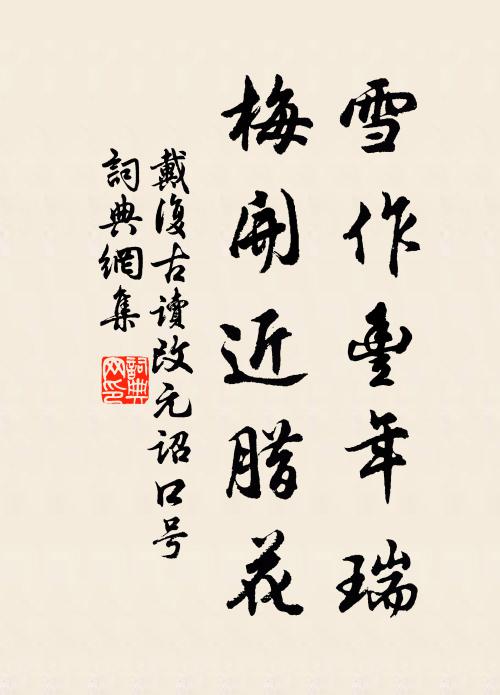 雪作豐年瑞
梅開近腊花
戴復古讀改元詔口号
詞典網集
詞典
网印